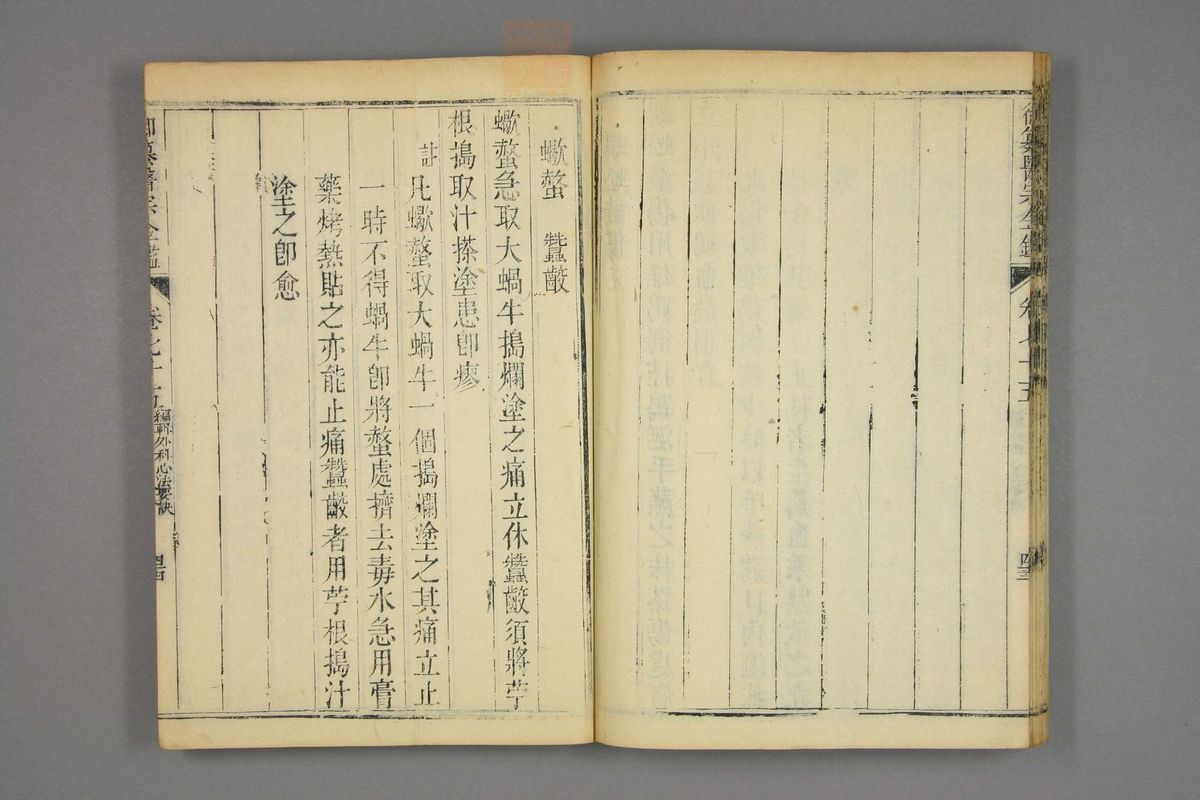 御纂醫宗金鑑 卷七十五 四三
蠍螫 蠶齩
蠍螫急取大蝸牛搗爛塗之痛立休蠶齩須將苧
根搗取汁搽塗患卽瘳
註 凡蠍螫取大蝸牛一個搗爛塗之其痛立止
一時不得蝸牛卽將螫處擠去毒水急用膏
藥烤熱貼之亦能止痛蠶齩者用苧根搗汁
塗之卽愈
御纂醫宗金鑑 卷七十五 編輯外科心法要訣 四四